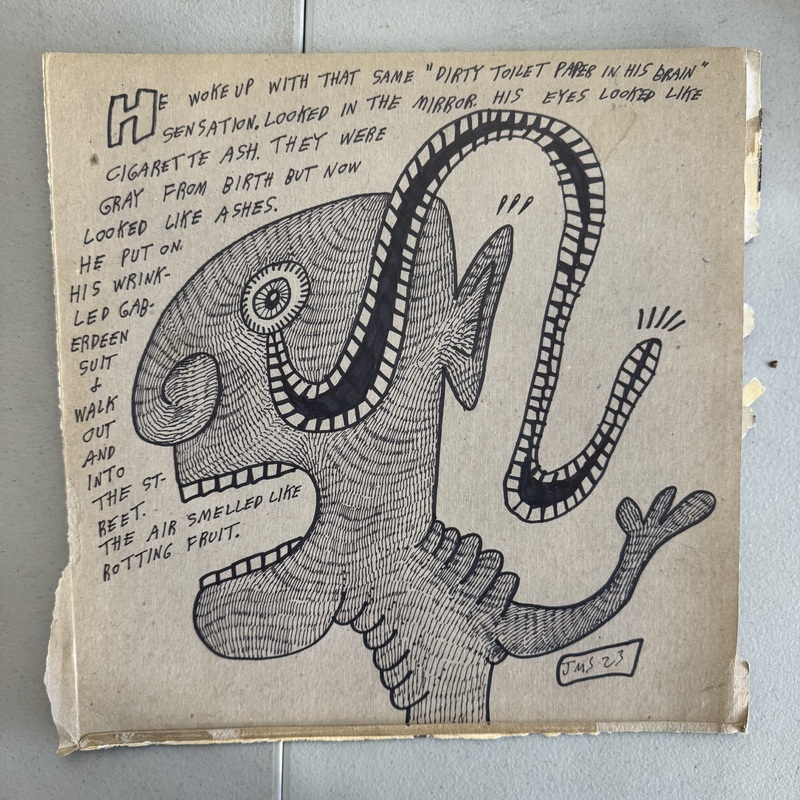 HE WOKE UP WITH THAT SAME "DIRTY TOILET PAPER IN HIS BRAIN"
SENSATION. LOOKED IN THE MIRROR. HIS EYES LOOKED LIKE
CIGARETTE ASH. THEY WERE
GRAY FROM BIRTH BUT NOW
LOOKED LIKE ASHES.
HE PUT ON
HIS WRINK-
LED GAB-
ERDEEN
SUIT
&
WALK
OUT
AND
INTO
THE ST-
REET.
THE AIR SMELLED LIKE
ROTTING FRUIT.
JMS 23